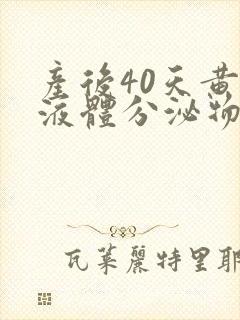 產後40天黃
液體分泌物
瓦萊麗特里耶